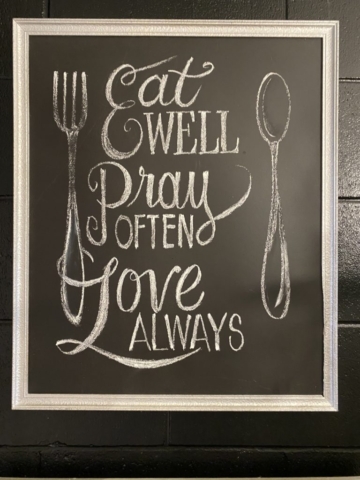 Eat
WELL
Pray
OFTEN
Love
ALWAYS